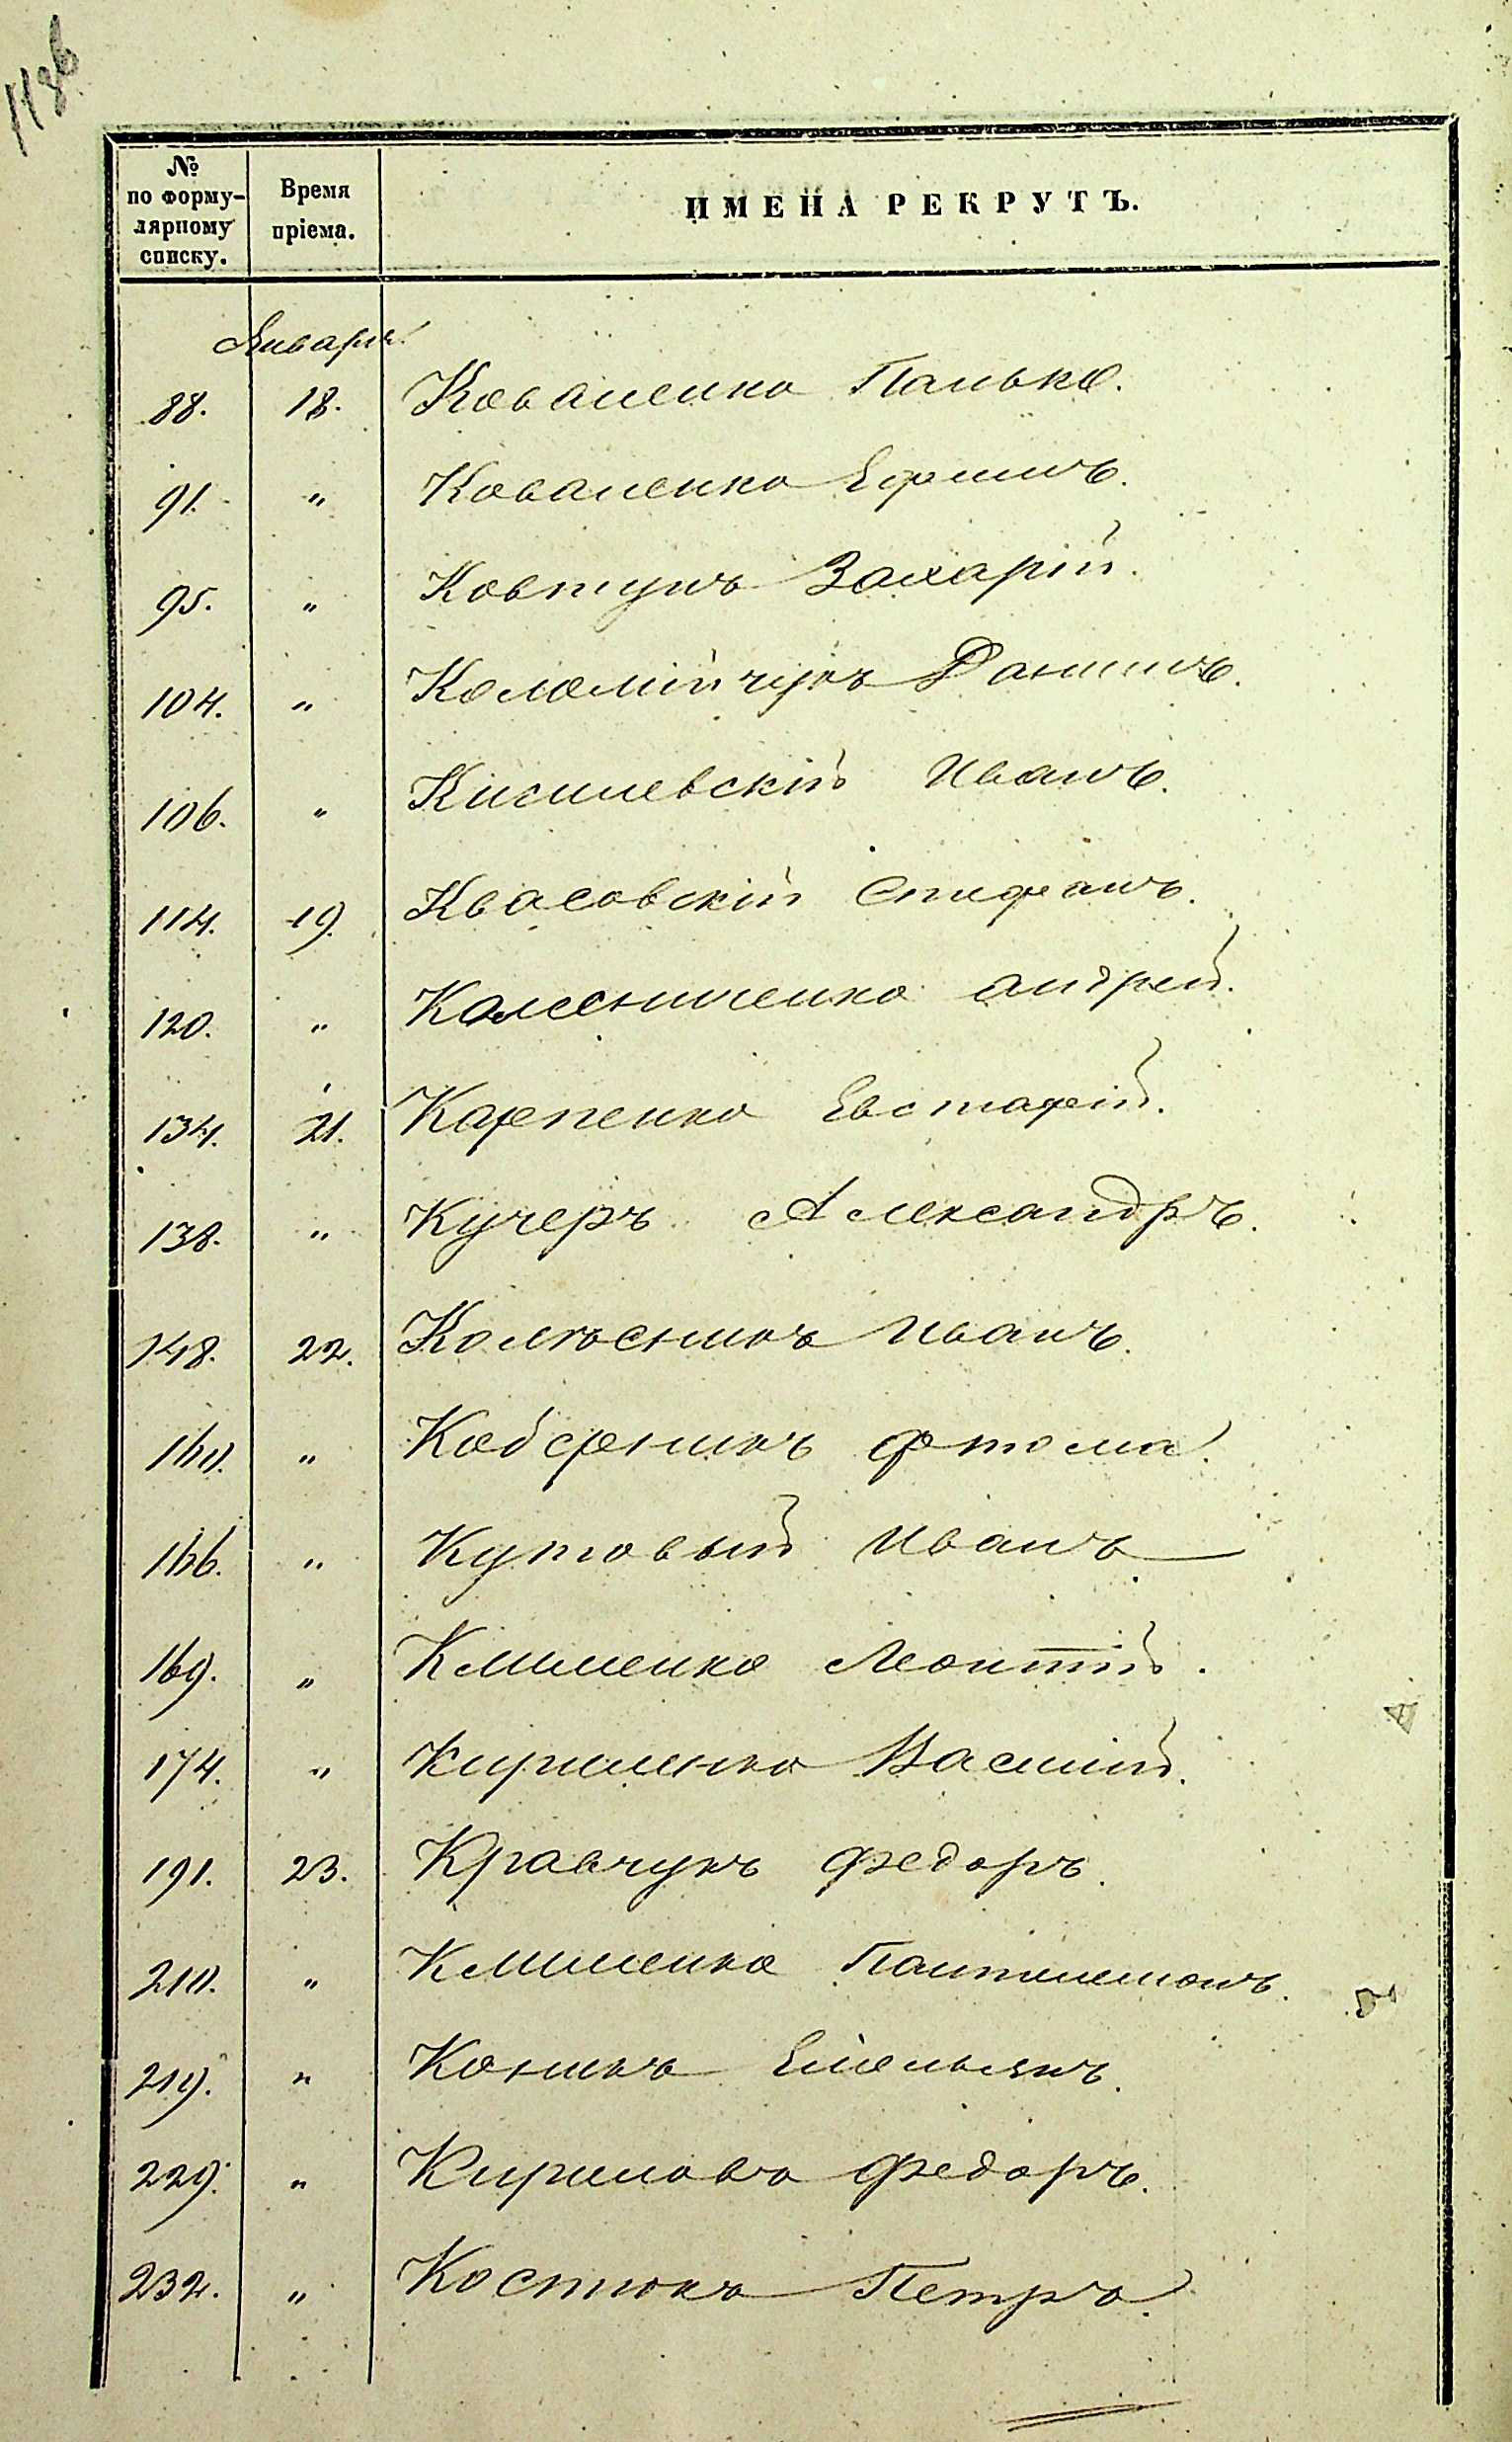 118б
№ по формулярному списку.
Время пріема.
ИМЕНА РЕКРУТЪ.
Января
88. 18. Коваленко Панько.
91. " Коваленко Ефимъ.
95. " Ковтунъ Захарій.
104. " Коломійчукъ Данилъ.
106. " Кисилевскій Иванъ.
114. 19. Квасовскій Стефанъ.
120. " Колесниченко Андрей.
134. 21. Карпенко Евстафій.
138. " Кучеръ Александръ.
148. 22. Колѣсникъ Иванъ.
160. " Кобзарникъ Фтома.
166. " Кутовый Иванъ
169. " Клименко Леонтій.
174. " Кириленко Василій.
191. 23. Кравчукъ Федоръ.
210. " Клименко Пантилемонъ.
219. " Коникъ Емельянъ.
229. " Кириловъ Федоръ.
232. " Костюкъ Петръ.